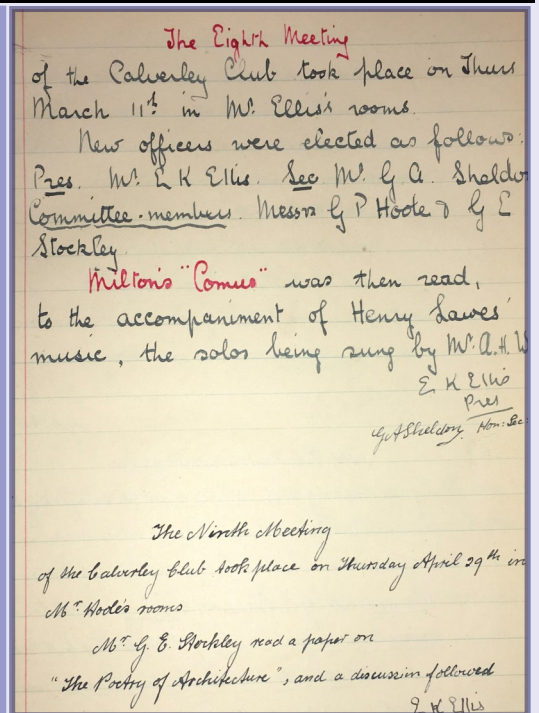 The Eighth Meeting
of the Calverley Club took place on Thurs
March 11th in Mr. Ellis's rooms.
New officers were elected as follows:
Pres. Mr. E K Ellis. Sec Mr. G. A. Sheldon
Committee-members. Messrs G P Hoote & G E
Stockley.
Milton's "Comus" was then read,
to the accompaniment of Henry Lawes'
music, the solos being sung by Mr. A. H. W
E K Ellis
Pres
G A Sheldon. Hon: Sec:
The Ninth Meeting
of the Calverley Club took place on Thursday April 29th in
Mr. rooms
Mr. G. E. Stockley read a paper on
"The Poetry of Architecture", and a discussion followed
E K Ellis